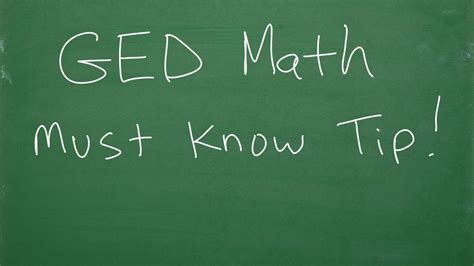 GED Math
Must Know Tip!